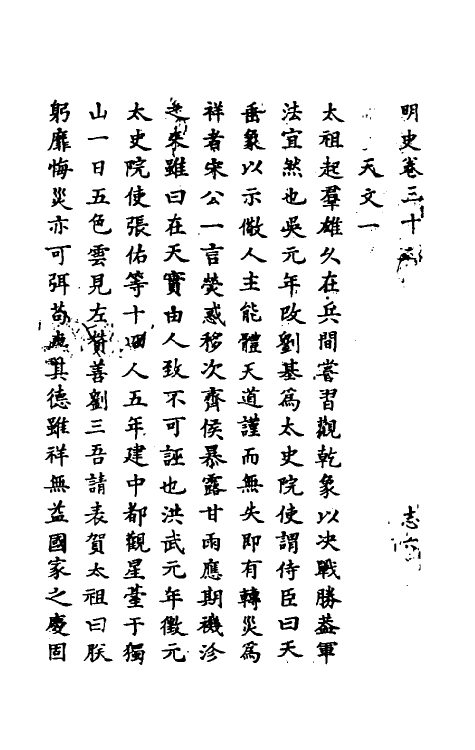 明史卷三十 志六
天文一
太祖起羣雄久在兵間嘗習觀乾象以决戰勝葢軍
法宜然也吳元年改劉基為太史院使謂侍臣曰天
垂象以示儆人主能體天道謹而無失即有轉災為
祥者宋公一言熒惑移次齊侯暴露甘雨應期磯沴
之來雖曰在天實由人致不可誣也洪武元年徵元
太史院使張佑等十四人五年建中都觀星臺于獨
山一日五色雲見左贊善劉三吾請表賀太祖曰朕
躬靡悔災亦可弭茍無其德雖祥無益國家之慶固